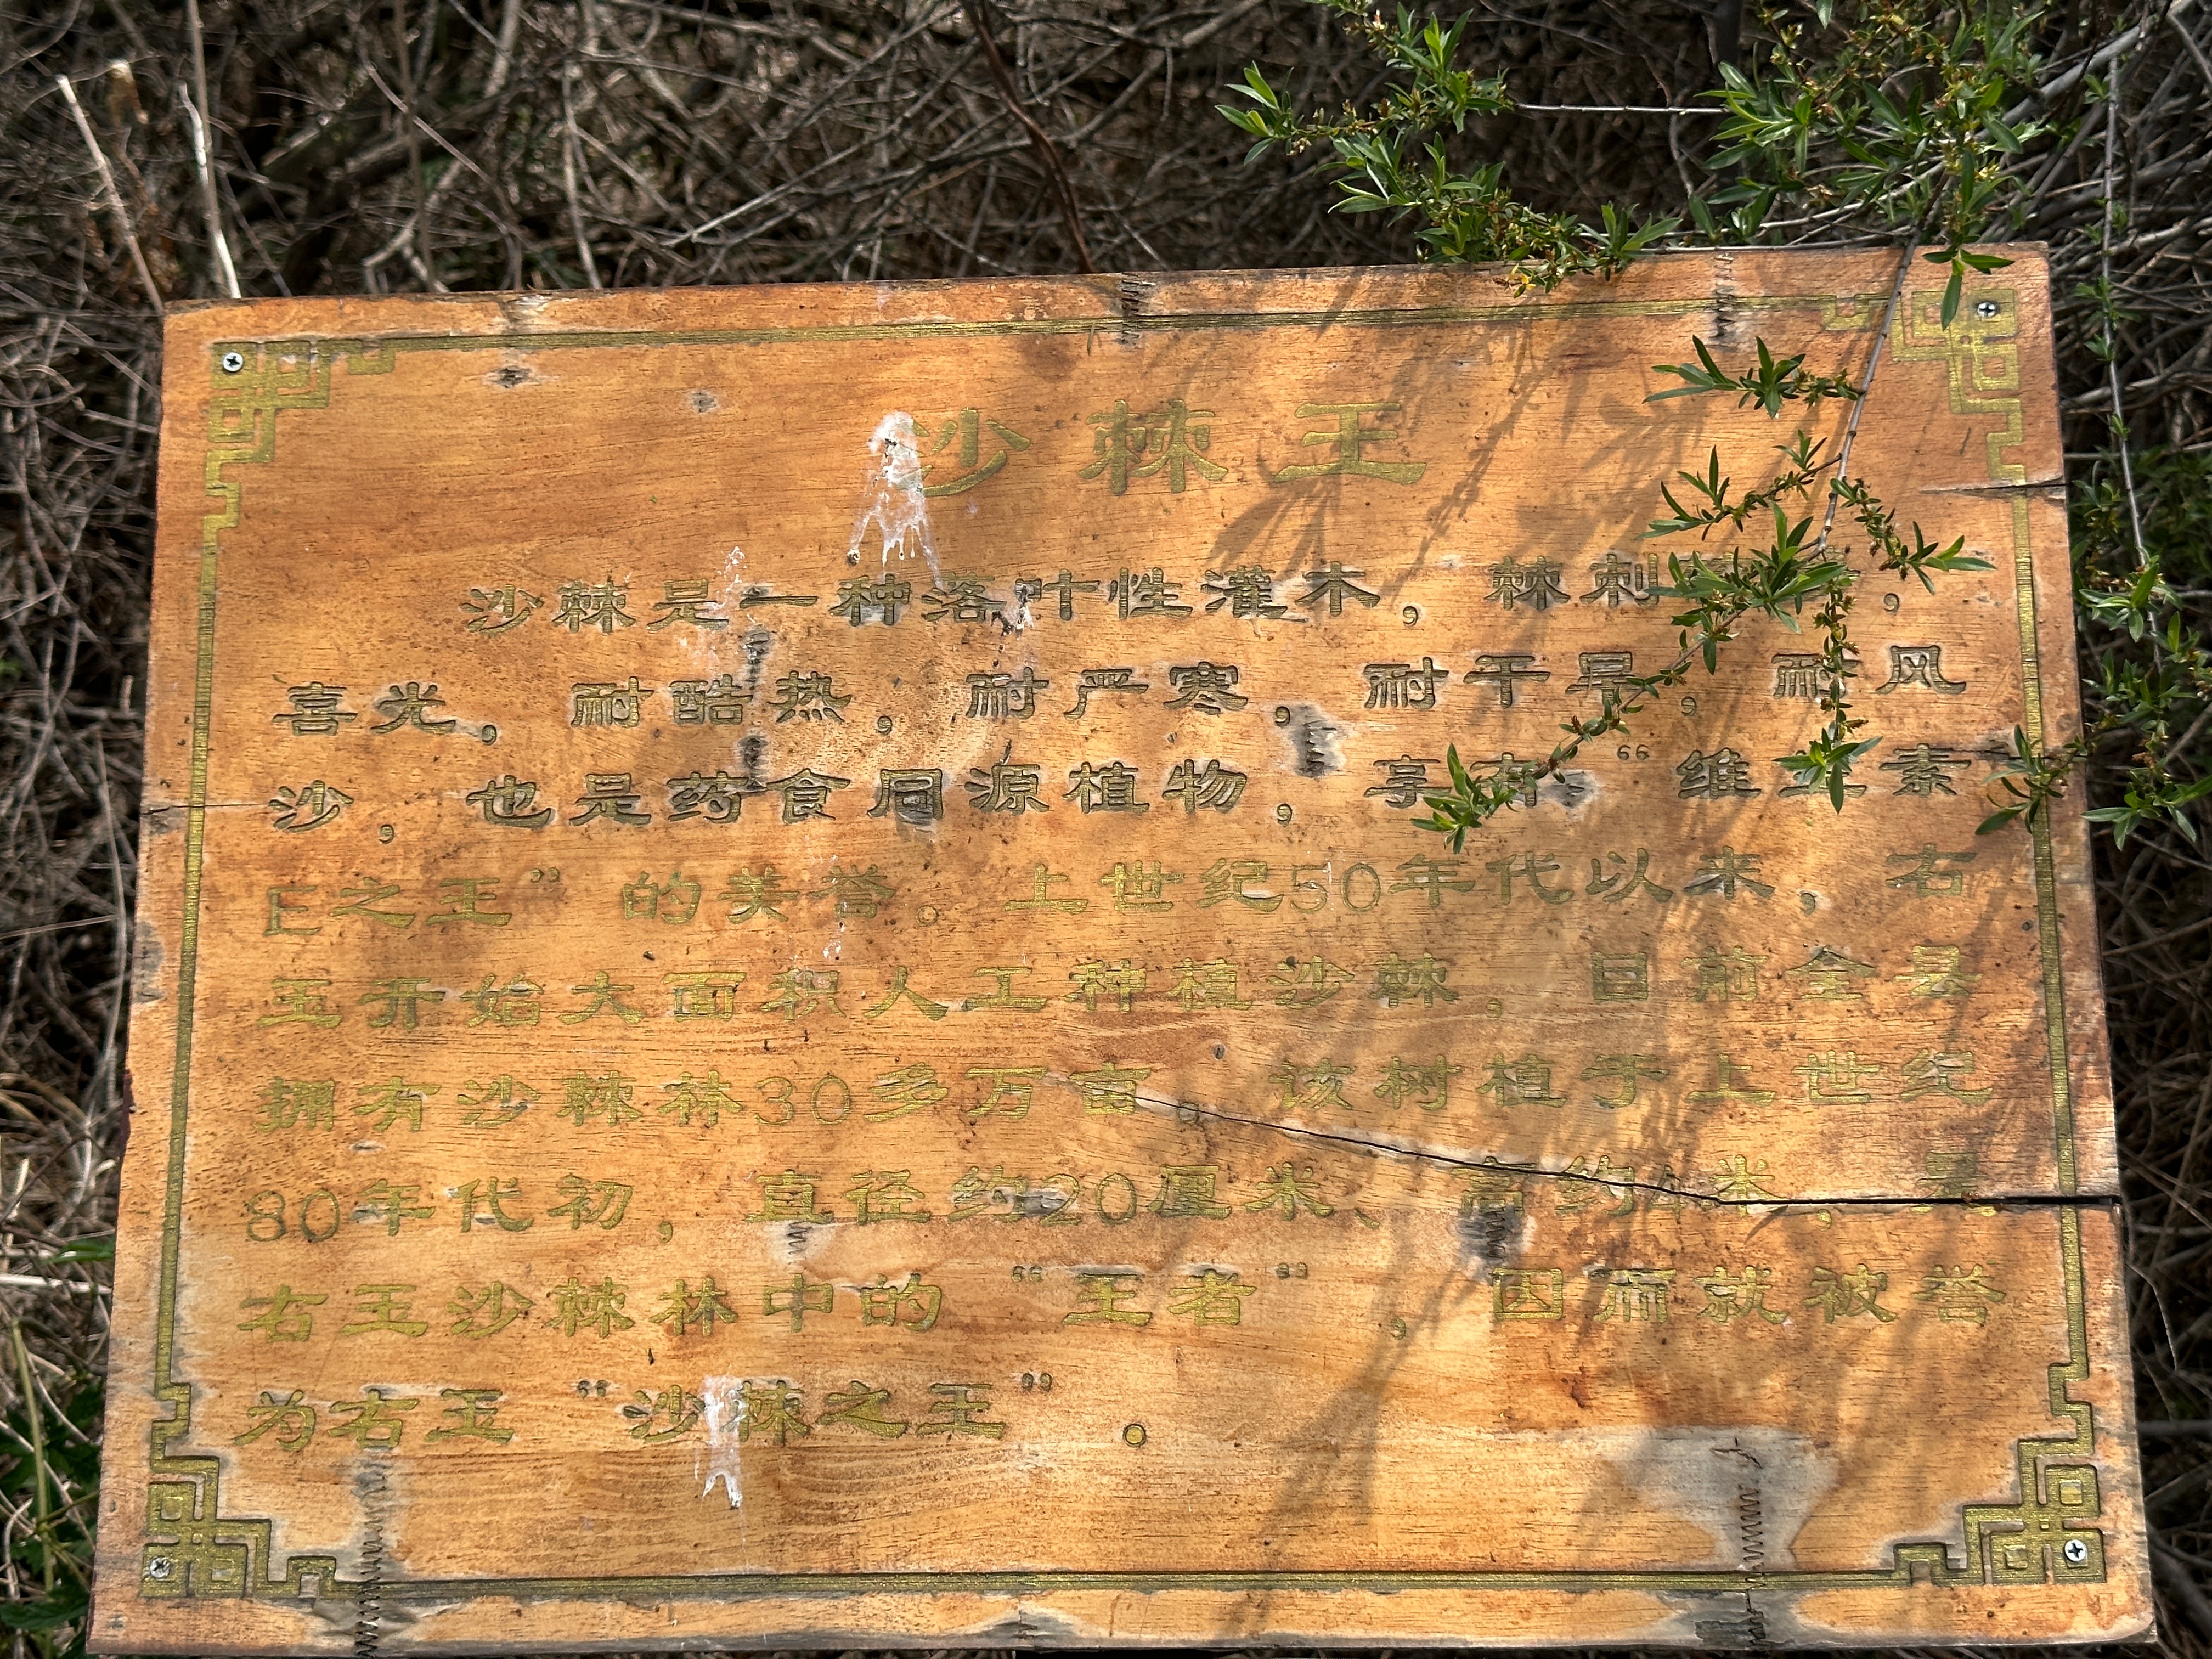 沙棘王
沙棘是一种落叶性灌木，棘刺，
喜光，耐酷热，耐严寒，耐干旱，耐风
沙，也是药食同源植物，享有“维生素
E之王”的美誉。上世纪50年代以来，右
玉开始大面积人工种植沙棘，目前全县
拥有沙棘林30多万亩。该树植于上世纪
80年代初，直径约20厘米、高约4米，是
右玉沙棘林中的“王者”，因而就被誉
为右玉“沙棘之王”。